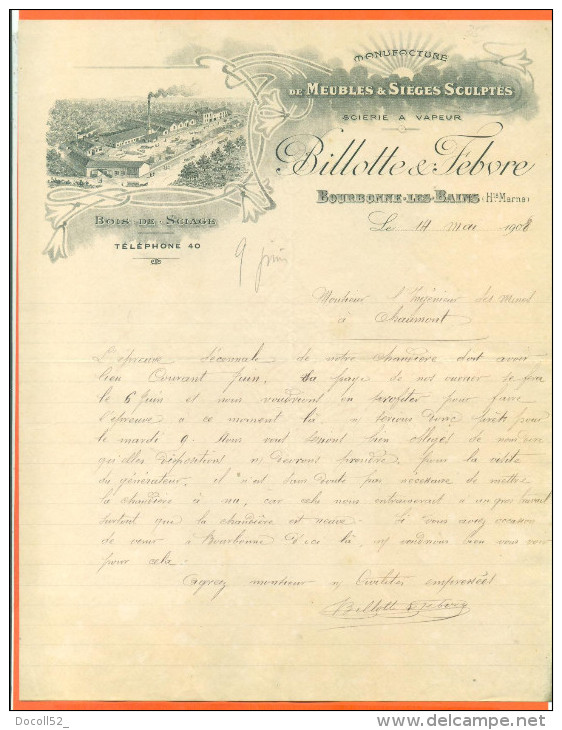 MANUFACTURE
DE MEUBLES & SIÈGES SCULPTÉS
SCIERIE A VAPEUR
Billotte & Febvre
BOURBONNE-LES-BAINS (Hte Marne)
BOIS DE SCIAGE
TÉLÉPHONE 40
Le 14 mai 1908
9 juin
Monsieur l'Ingénieur des Mines
à Chaumont
L'épreuve décennale de notre chaudière doit avoir
lieu Courant Juin. La paye de nos ouvrier se fera
le 6 Juin et nous voudrions en profiter pour faire
l'épreuve a ce moment là, serions donc prêts pour
le mardi 9. Nous vous serions bien obligés de nous dire
qu'elles dispositions ns devrons prendre, pour la visite
du générateur, il n'est sans doute pas nécessaire de mettre
la chaudière à nu, car cela nous entrainerait à un gros travail
surtout que la chaudière est neuve. Si vous avez occasion
de venir à Bourbonne d'ici là, ns voudrions bien vous voir
pour cela.
Agréez monsieur ns Civilités empressées
Billotte & Febvre
Docoll52_
www.delcampe.net